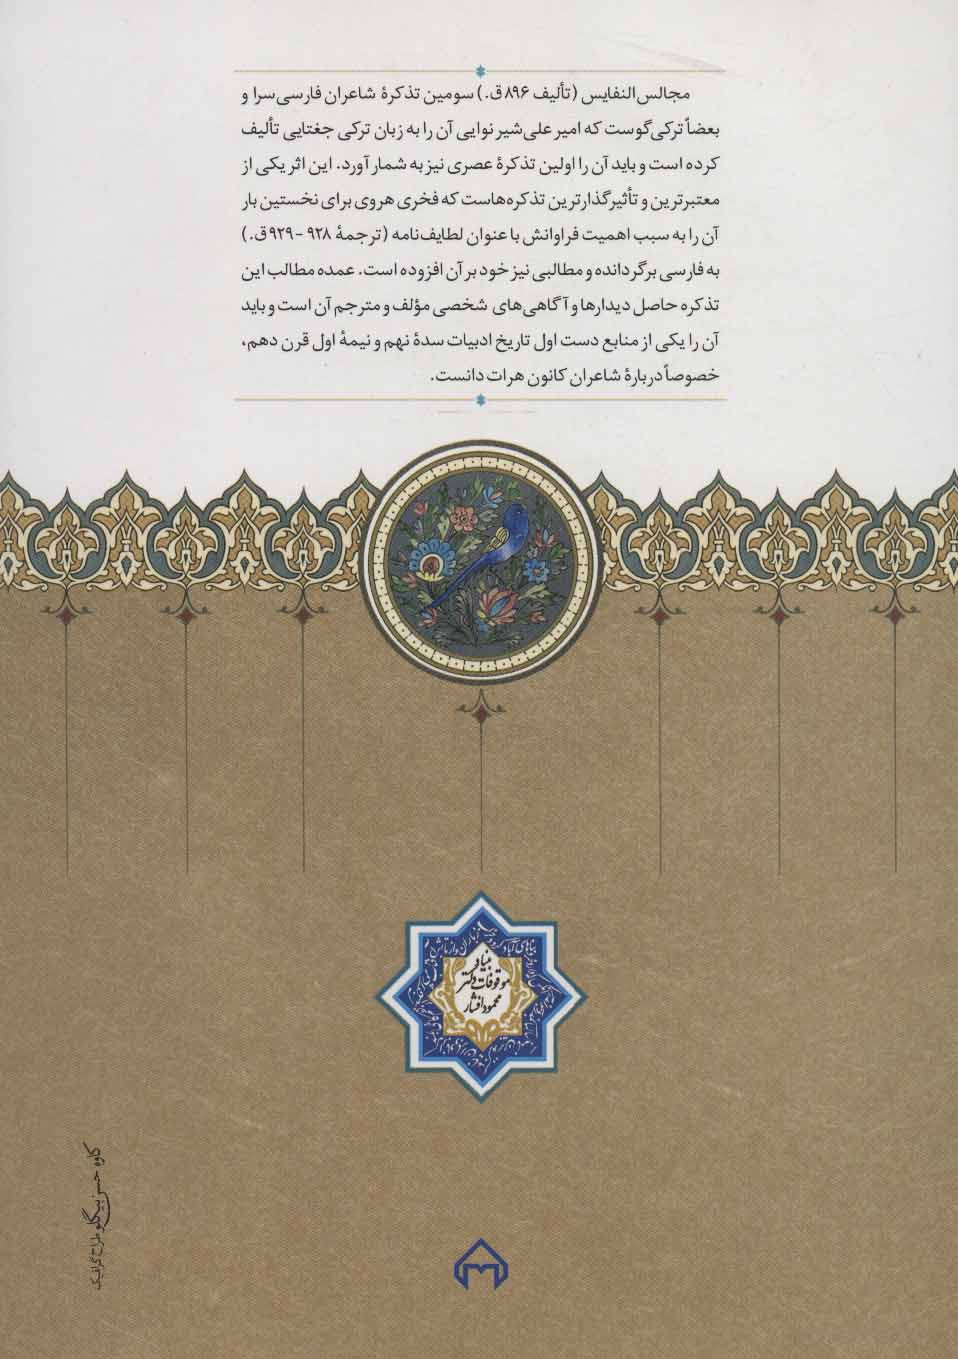 مجالس‌النفایس (تألیف ۸۹۶ق.) سومین تذکرهٔ شاعران فارسی‌سرا و
بعضاً ترکی‌گوست که امیر علی‌شیر نوایی آن را به زبان ترکی جغتایی تألیف
کرده است و باید آن را اولین تذکرهٔ عصری نیز به شمار آورد. این اثر یکی از
معتبرترین و تأثیرگذارترین تذکره‌هاست که فخری هروی برای نخستین بار
آن را به سبب اهمیت فراوانش با عنوان لطایف‌نامه (ترجمهٔ ۹۲۸ - ۹۲۹ق.)
به فارسی برگردانده و مطالبی نیز خود بر آن افزوده است. عمده مطالب این
تذکره حاصل دیدارها و آگاهی‌های شخصی مؤلف و مترجم آن است و باید
آن را یکی از منابع دست اول تاریخ ادبیات سدهٔ نهم و نیمهٔ اول قرن دهم،
خصوصاً دربارهٔ شاعران کانون هرات دانست.
بنیاد
موقوفات دکتر
محمود افشار
کاوه حسن‌بیگلو طراح گرافیک